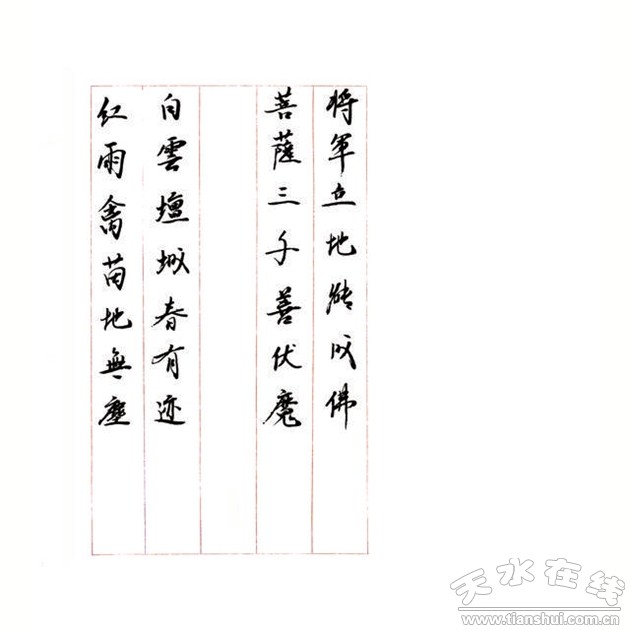 将军立地能成佛
菩薩三千善伏魔
白雲壇城春有迹
红雨禽苗地無塵
天水在线
www.tianshui.com.cn